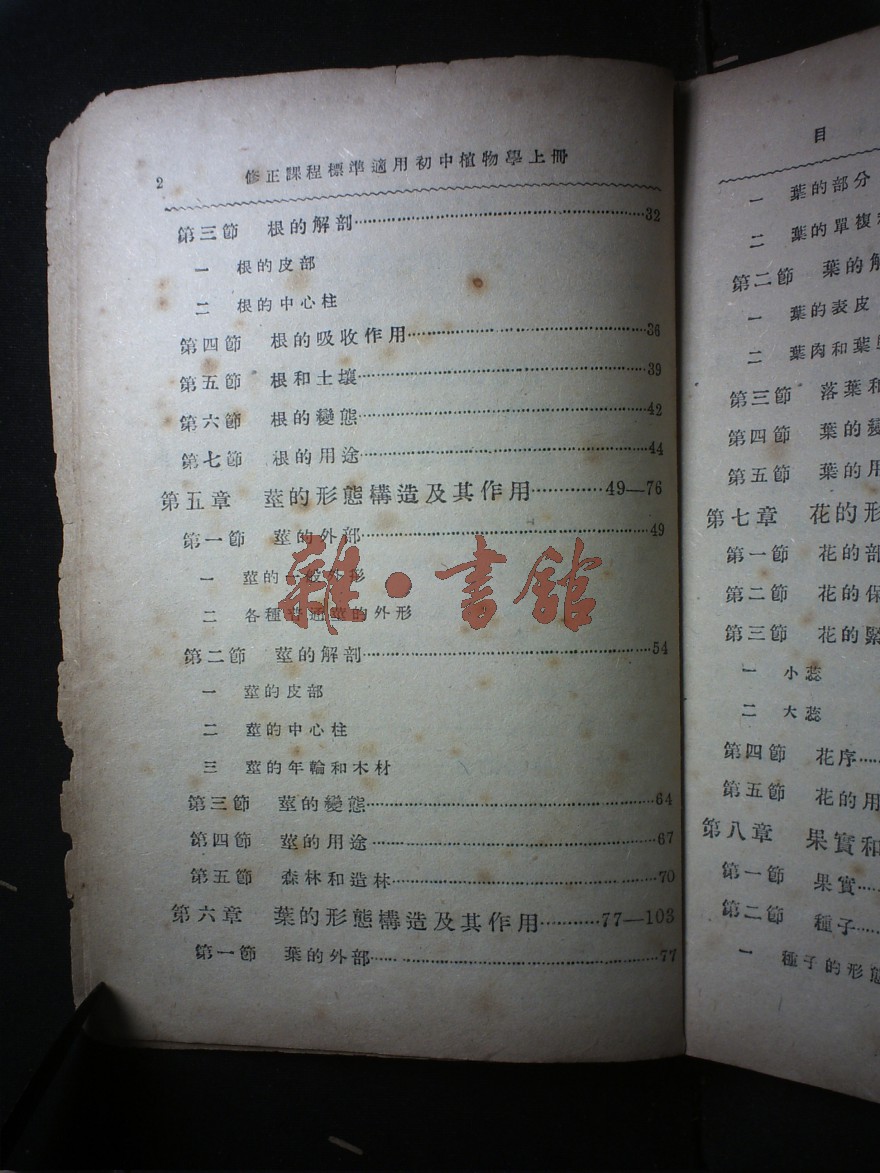 2 修正課程標準適用初中植物學上冊
第三節 根的解剖……32
一 根的皮部
二 根的中心柱
第四節 根的吸收作用……36
第五節 根和土壤……39
第六節 根的變態……42
第七節 根的用途……44
第五章 莖的形態構造及其作用……49—76
第一節 莖的外部……49
一 莖的一般外形
二 各種普通莖的外形
第二節 莖的解剖……54
一 莖的皮部
二 莖的中心柱
三 莖的年輪和木材
第三節 莖的變態……64
第四節 莖的用途……67
第五節 森林和造林……70
第六章 葉的形態構造及其作用……77—103
第一節 葉的外部……77
雜·書館
目
一 葉的部分
二 葉的單複
第二節 葉的解
一 葉的表皮
二 葉肉和葉
第三節 落葉和
第四節 葉的變
第五節 葉的用
第七章 花的形
第一節 花的部
第二節 花的保
第三節 花的緊
一 小蕊
二 大蕊
第四節 花序……
第五節 花的用
第八章 果實和
第一節 果實……
第二節 種子……
一 種子的形態